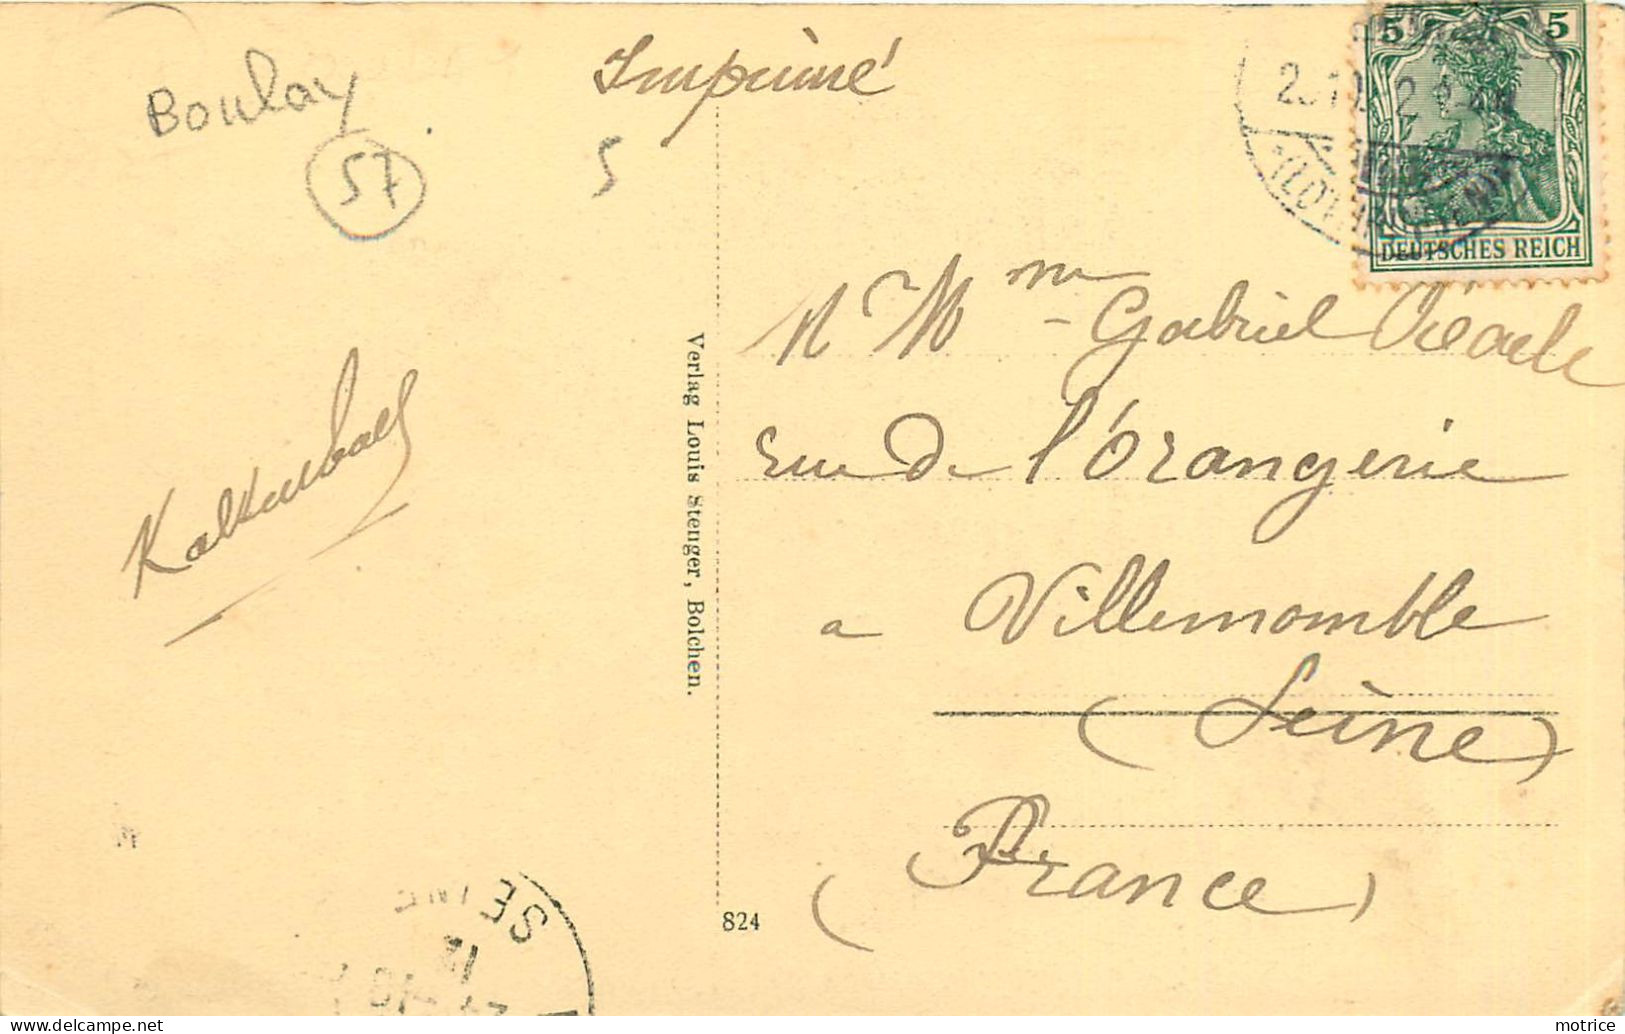 Boulay
57
Imprimé
5
5 5
DEUTSCHES REICH
M Mme Gabriel
rue de l'Orangerie
a Villemomble
(Seine)
(France)
Kalkenbach
Verlag Louis Stenger, Bolchen.
824
SEINE
12
motrice